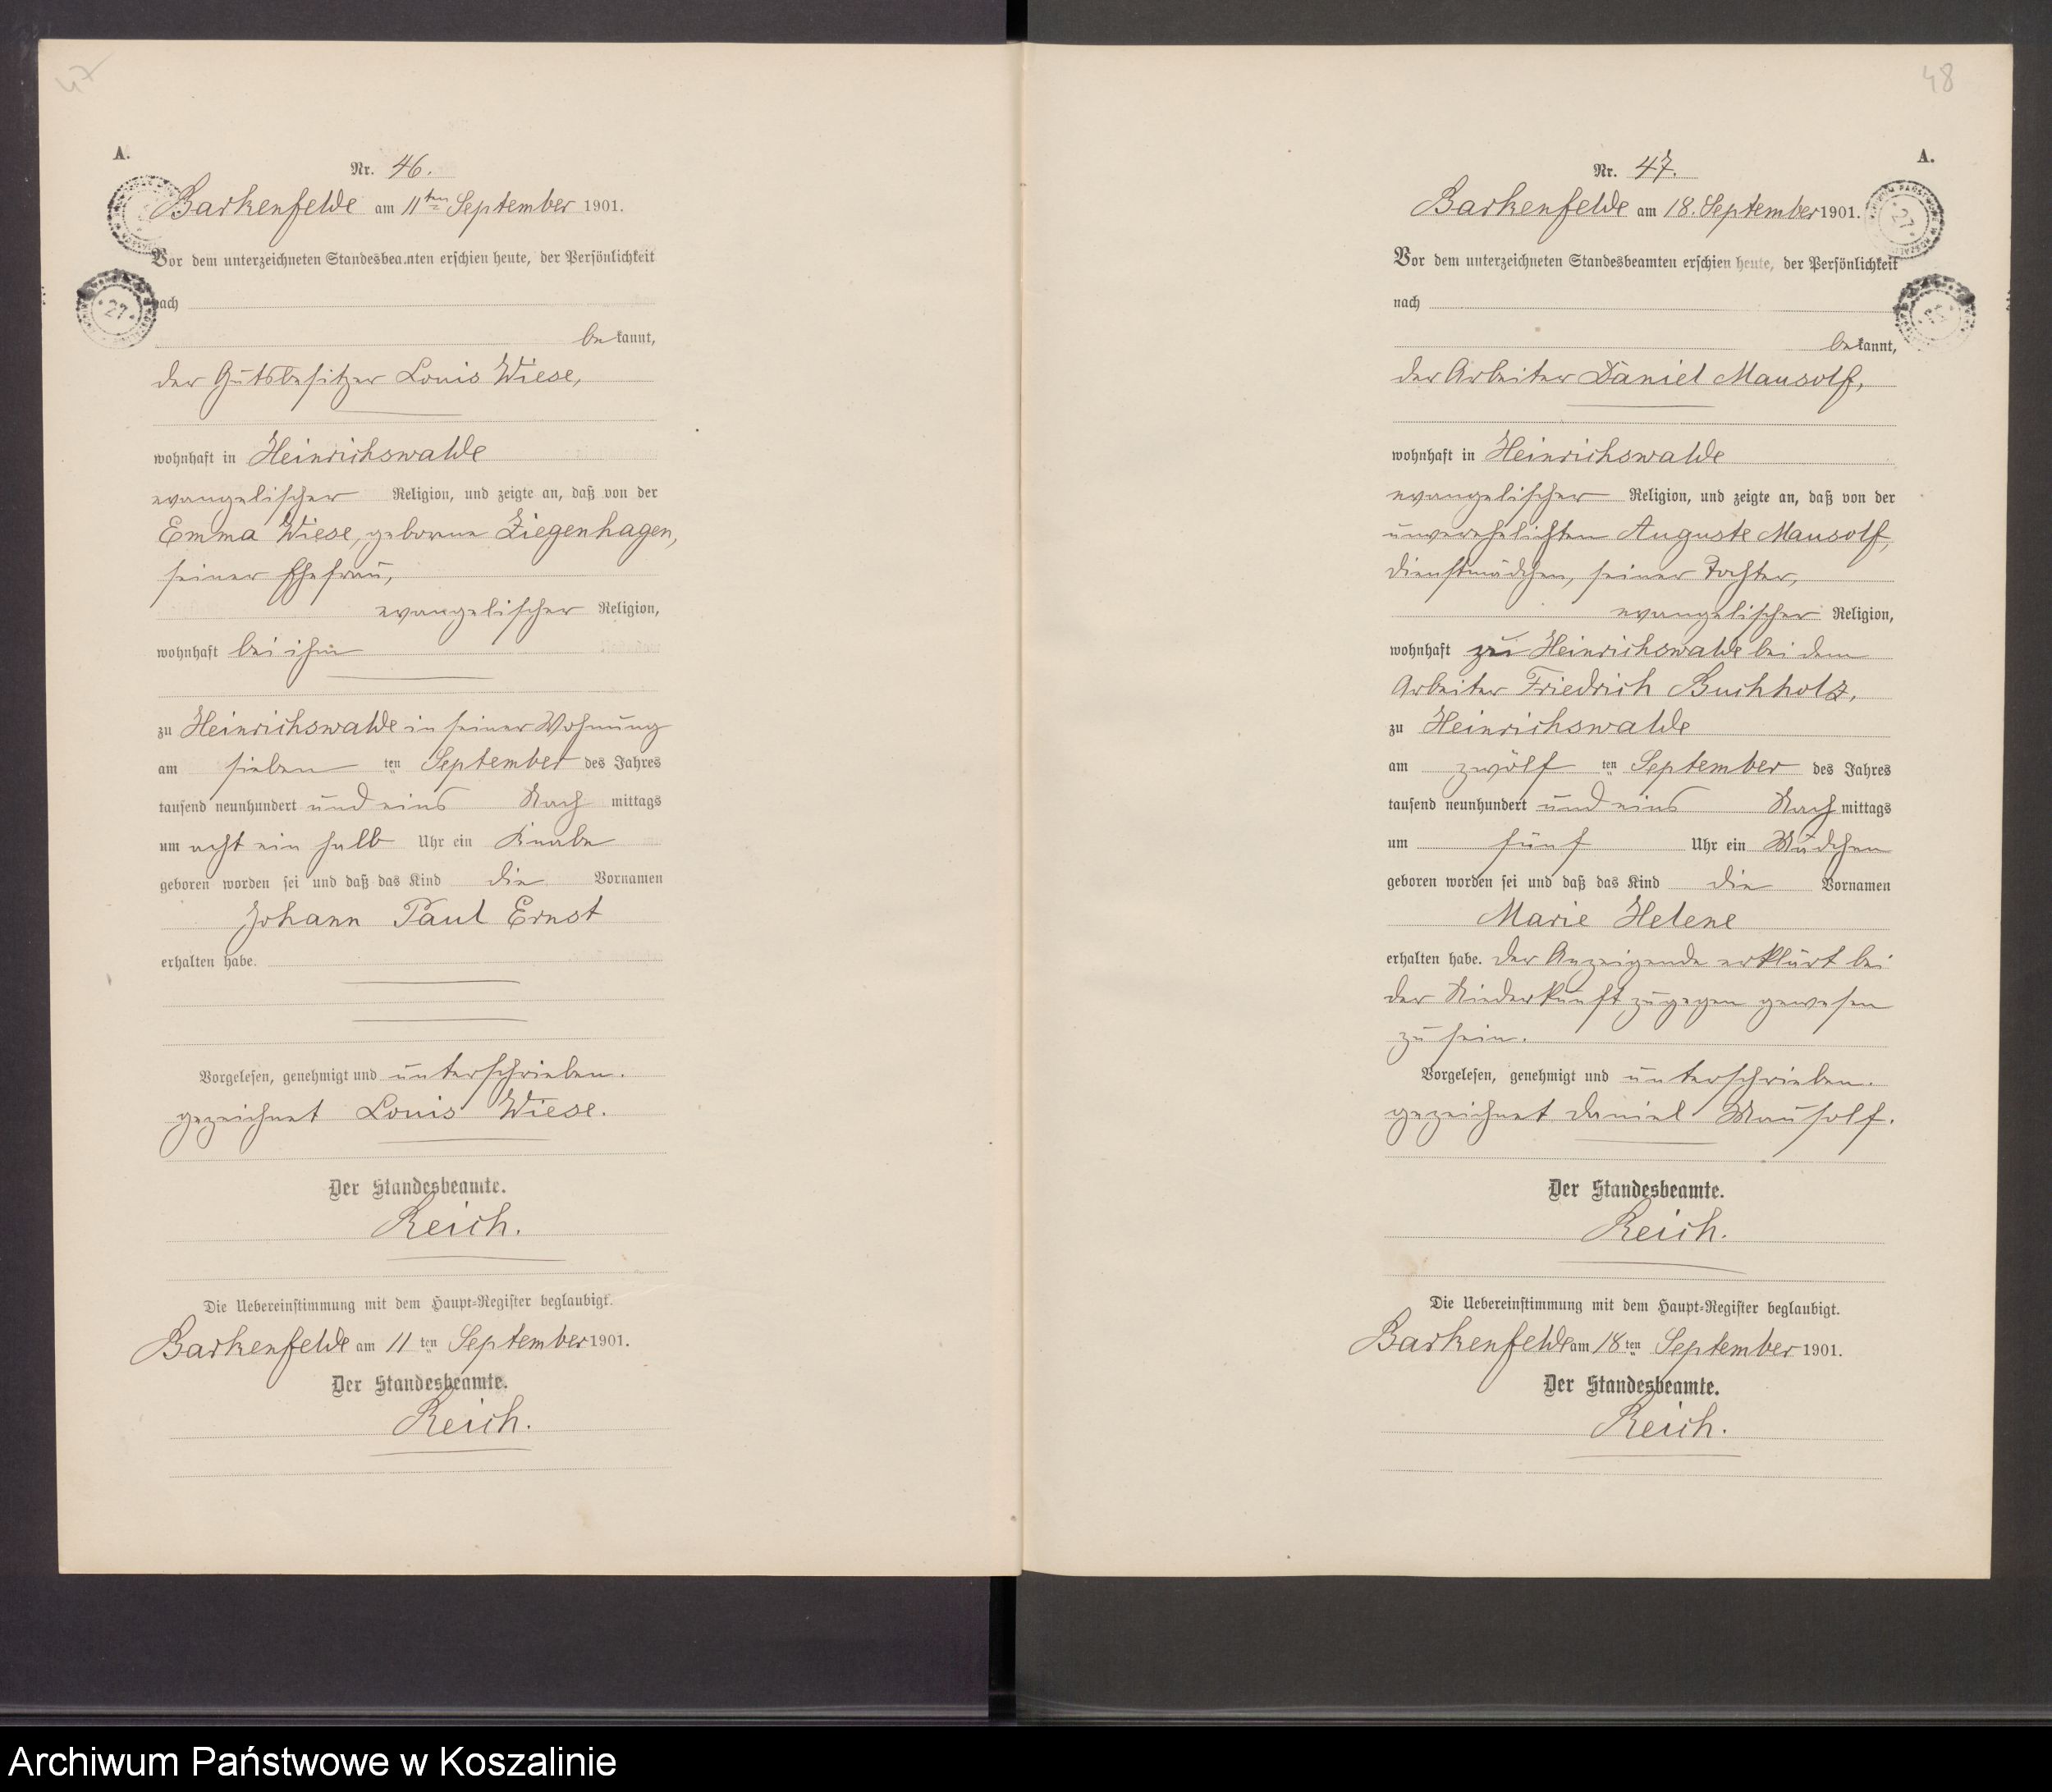 47
A.
Nr. 46.
Barkenfelde am 11ten September 1901.
Vor dem unterzeichneten Standesbeamten erschien heute, der Persönlichkeit
nach
bekannt,
der Gutsbesitzer Louis Wiese,
wohnhaft in Heinrichswalde
evangelischer Religion, und zeigte an, daß von der
Emma Wiese, geborne Ziegenhagen,
seiner Ehefrau,
evangelischer Religion,
wohnhaft bei ihm
zu Heinrichswalde in seiner Wohnung
am sieben ten September des Jahres
tausend neunhundert und eins Nach mittags
um acht ein halb Uhr ein Knabe
geboren worden sei und daß das Kind die Vornamen
Johann Paul Ernst
erhalten habe.
Vorgelesen, genehmigt und unterschrieben.
gezeichnet Louis Wiese.
Der Standesbeamte.
Reich.
Die Uebereinstimmung mit dem Haupt-Register beglaubigt.
Barkenfelde am 11 ten September 1901.
Der Standesbeamte.
Reich.
48
A.
Nr. 47.
Barkenfelde am 18. September 1901.
27
Vor dem unterzeichneten Standesbeamten erschien heute, der Persönlichkeit
nach
bekannt,
der Arbeiter Daniel Mausolf,
wohnhaft in Heinrichswalde
evangelischer Religion, und zeigte an, daß von der
unverehelichten Auguste Mausolf,
Dienstmädchen, seiner Tochter,
evangelischer Religion,
wohnhaft zu Heinrichswalde bei dem
Arbeiter Friedrich Buchholz,
zu Heinrichswalde
am zwölf ten September des Jahres
tausend neunhundert und eins Nach mittags
um fünf Uhr ein Mädchen
geboren worden sei und daß das Kind die Vornamen
Marie Helene
erhalten habe. Der Anzeigende erklärt bei
der Niederkunft zugegen gewesen
zu sein.
Vorgelesen, genehmigt und unterschrieben.
gezeichnet Daniel Mausolf.
Der Standesbeamte.
Reich.
Die Uebereinstimmung mit dem Haupt-Register beglaubigt.
Barkenfelde am 18 ten September 1901.
Der Standesbeamte.
Reich.
27
Archiwum Państwowe w Koszalinie